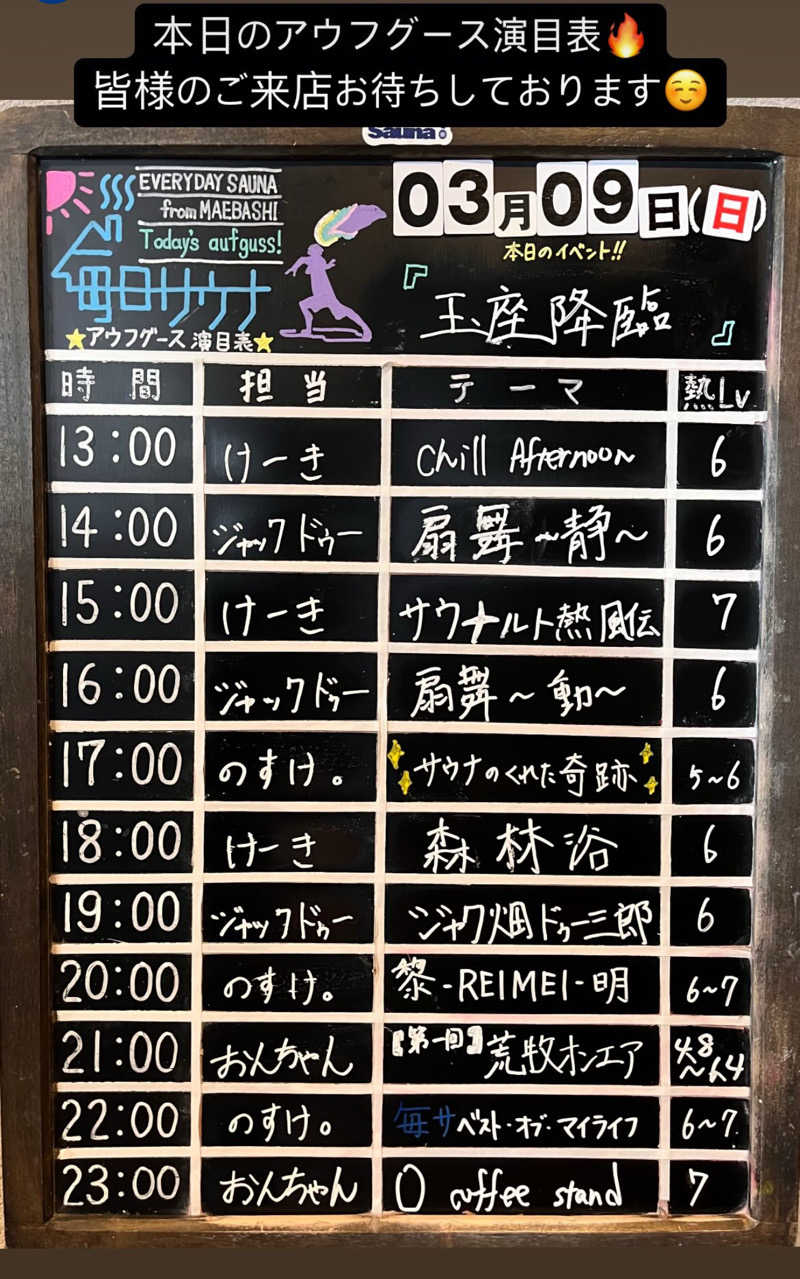 本日のアウフグース演目表🔥
皆様のご来店お待ちしております☺️
Sauna
EVERYDAY SAUNA
from MAEBASHI
Today's aufguss!
毎日サウナ
⭐アウフグース演目表⭐
03月09日(日)
本日のイベント!!
『玉座降臨』
時間 担当 テーマ 熱Lv
13:00 けーき Chill Afternoon 6
14:00 ジャックドゥー 扇舞〜静〜 6
15:00 けーき サウナルト熱風伝 7
16:00 ジャックドゥー 扇舞〜動〜 6
17:00 のすけ。 サウナのくれた奇跡 5~6
18:00 けーき 森林浴 6
19:00 ジャックドゥー ジャク畑ドゥー三郎 6
20:00 のすけ。 黎-REIMEI-明 6~7
21:00 おんちゃん 『第一回』荒牧オンエア 4.8〜6.4
22:00 のすけ。 毎サベスト・オブ・マイライフ 6~7
23:00 おんちゃん O coffee stand 7